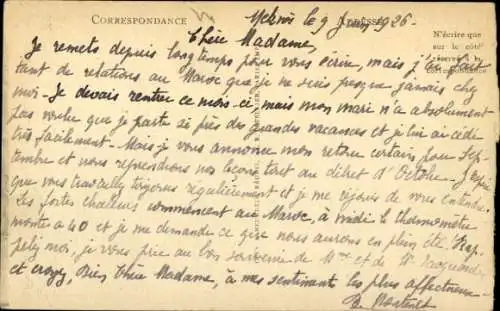 CORRESPONDANCE
ADRESSE
N'écrire que
sur le côté
réservé à la
correspondance
le 9 Juin 1926 -
Chère Madame,
Je remets depuis longtemps pour vous écrire, mais j'ai fait
tant de relations au Maroc que je ne suis presque jamais chez
moi - Je devais rentrer ce mois-ci, mais mon mari n'a absolument
pas voulu que je parte si près des grandes vacances et je lui ai cédé
très facilement - Mais je vous annonce mon retour certain pour Sep-
tembre et nous reprendrons nos leçons tout au début d'Octobre - J'espère
que vous travaillez toujours régulièrement et je me réjouis de vous entendre
Les fortes chaleurs commencent au Maroc, à midi le thermomètre
monte à 40 et je me demande ce que nous aurons en plein été. Rap-
pelez moi, je vous prie au bon souvenir de Mme et de Mr
et croyez, bien chère Madame, à mes sentiments les plus affectueux -